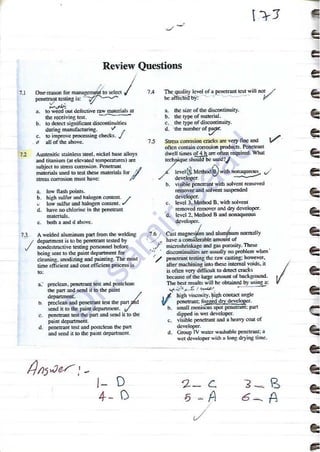 173
Review Questions
7.1 One reason for management to select
penetrant testing is:
a. to weed out defective raw materials at
the receiving test.
b. to detect significant discontinuities
during manufacturing.
c. to improve processing checks.
d. all of the above.
7.2 Austenitic stainless steel, nickel base alloys
and titanium (at elevated temperatures) are
subject to stress corrosion. Penetrant
materials used to test these materials for
stress corrosion must have:
a. low flash points.
b. high sulfur and halogen content.
c. low sulfur and halogen content.
d. have no chlorine in the penetrant
materials.
e. both a and d above.
7.3 A welded aluminum part from the welding
department is to be penetrant tested by
nondestructive testing personnel before
being sent to the paint department for
cleaning, anodizing and painting. The most
time efficient and cost efficient process is
to:
a. preclean, penetrant test and postclean
the part and send it to the paint
department.
b. preclean and penetrant test the part and
send it to the paint department.
c. penetrant test the part and send it to the
paint department.
d. penetrant test and postclean the part
and send it to the paint department.
7.4 The quality level of a penetrant test will not
be affected by:
a. the size of the discontinuity.
b. the type of material.
c. the type of discontinuity.
d. the number of parts.
7.5 Stress corrosion cracks are very fine and
often contain corrosion products. Penetrant
dwell times of 4 h are often required. What
technique should be used?
level 3, Method B, with nonaqueous
developer.
b. visible penetrant with solvent removed
remover and solvent suspended
developer.
c. level 3, Method B, with solvent
removed remover and dry developer.
d. level 2, Method B and nonaqueous
developer.
7.6 Cast magnesium and aluminum normally
have a considerable amount of
microshrinkage and gas porosity. These
discontinuities are usually no problem when
penetrant testing the raw casting; however,
after machining into these internal voids, it
is often very difficult to detect cracks
because of the large amount of background.
The best results will be obtained by using a:
high viscosity, high contact angle
penetrant; fogged dry developer.
b. small molecule spot penetrant; part
dipped in wet developer.
c. visible penetrant and a heavy coat of
developer.
d. Group IV water washable penetrant; a
wet developer with a long drying time.
Answer :-
1- D 2- C 3- B
4- D 5- A 6- A